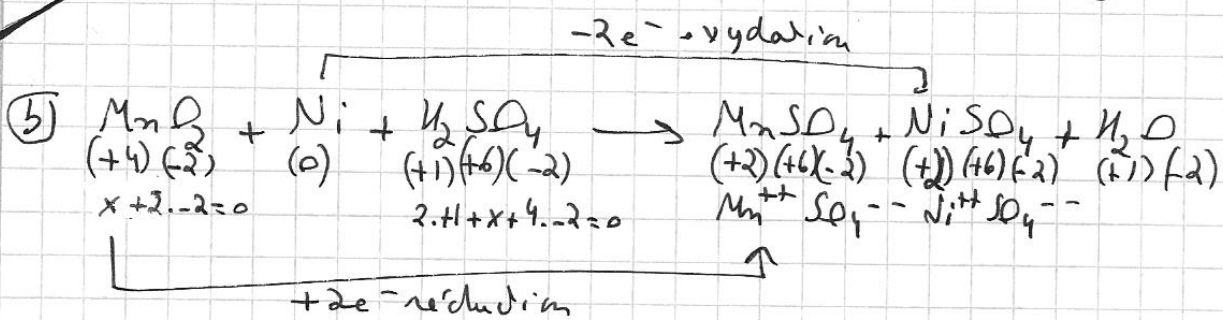 -2e⁻ oxydation
b) MnO₂ + Ni + H₂SO₄ → MnSO₄ + NiSO₄ + H₂O
(+4) (-2) (0) (+1)(+6)(-2) (+2)(+6)(-2) (+2)(+6)(-2) (+1)(-2)
x+2.-2=0 2.+1+x+4.-2=0 Mn⁺⁺ SO₄⁻⁻ Ni⁺⁺ SO₄⁻⁻
+2e⁻ réduction